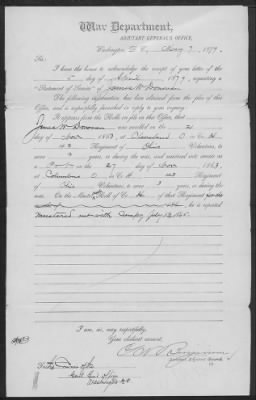 War Department,
ADJUTANT GENERAL'S OFFICE,
Washington, D. C., May 7, 1879.
Sir:
I have the honor to acknowledge the receipt of your letter of the
5 day of April 1879, requesting a
"Statement of Service" of James W. Donovan
The following information has been obtained from the files of this
Office, and is respectfully furnished in reply to your inquiry:
It appears from the Rolls on file in this Office, that
James W Donovan was enrolled on the 21
day of Nov 1863, at Cleveland O in Co H
Regiment of Ohio Volunteers, to
serve 3 years, or during the war, and mustered into service as
a on the 27 day of Nov 1863,
at Columbus O in Co H Regiment of
Ohio Volunteers, to serve 3 years, or
during the war. On the Muster Roll of Co. of that Regiment
he is reported
Mustered out with Company July 13, 1865.
I am, sir, very respectfully,
Your obedient servant,
Assistant Adjutant General.
Washington D.C.